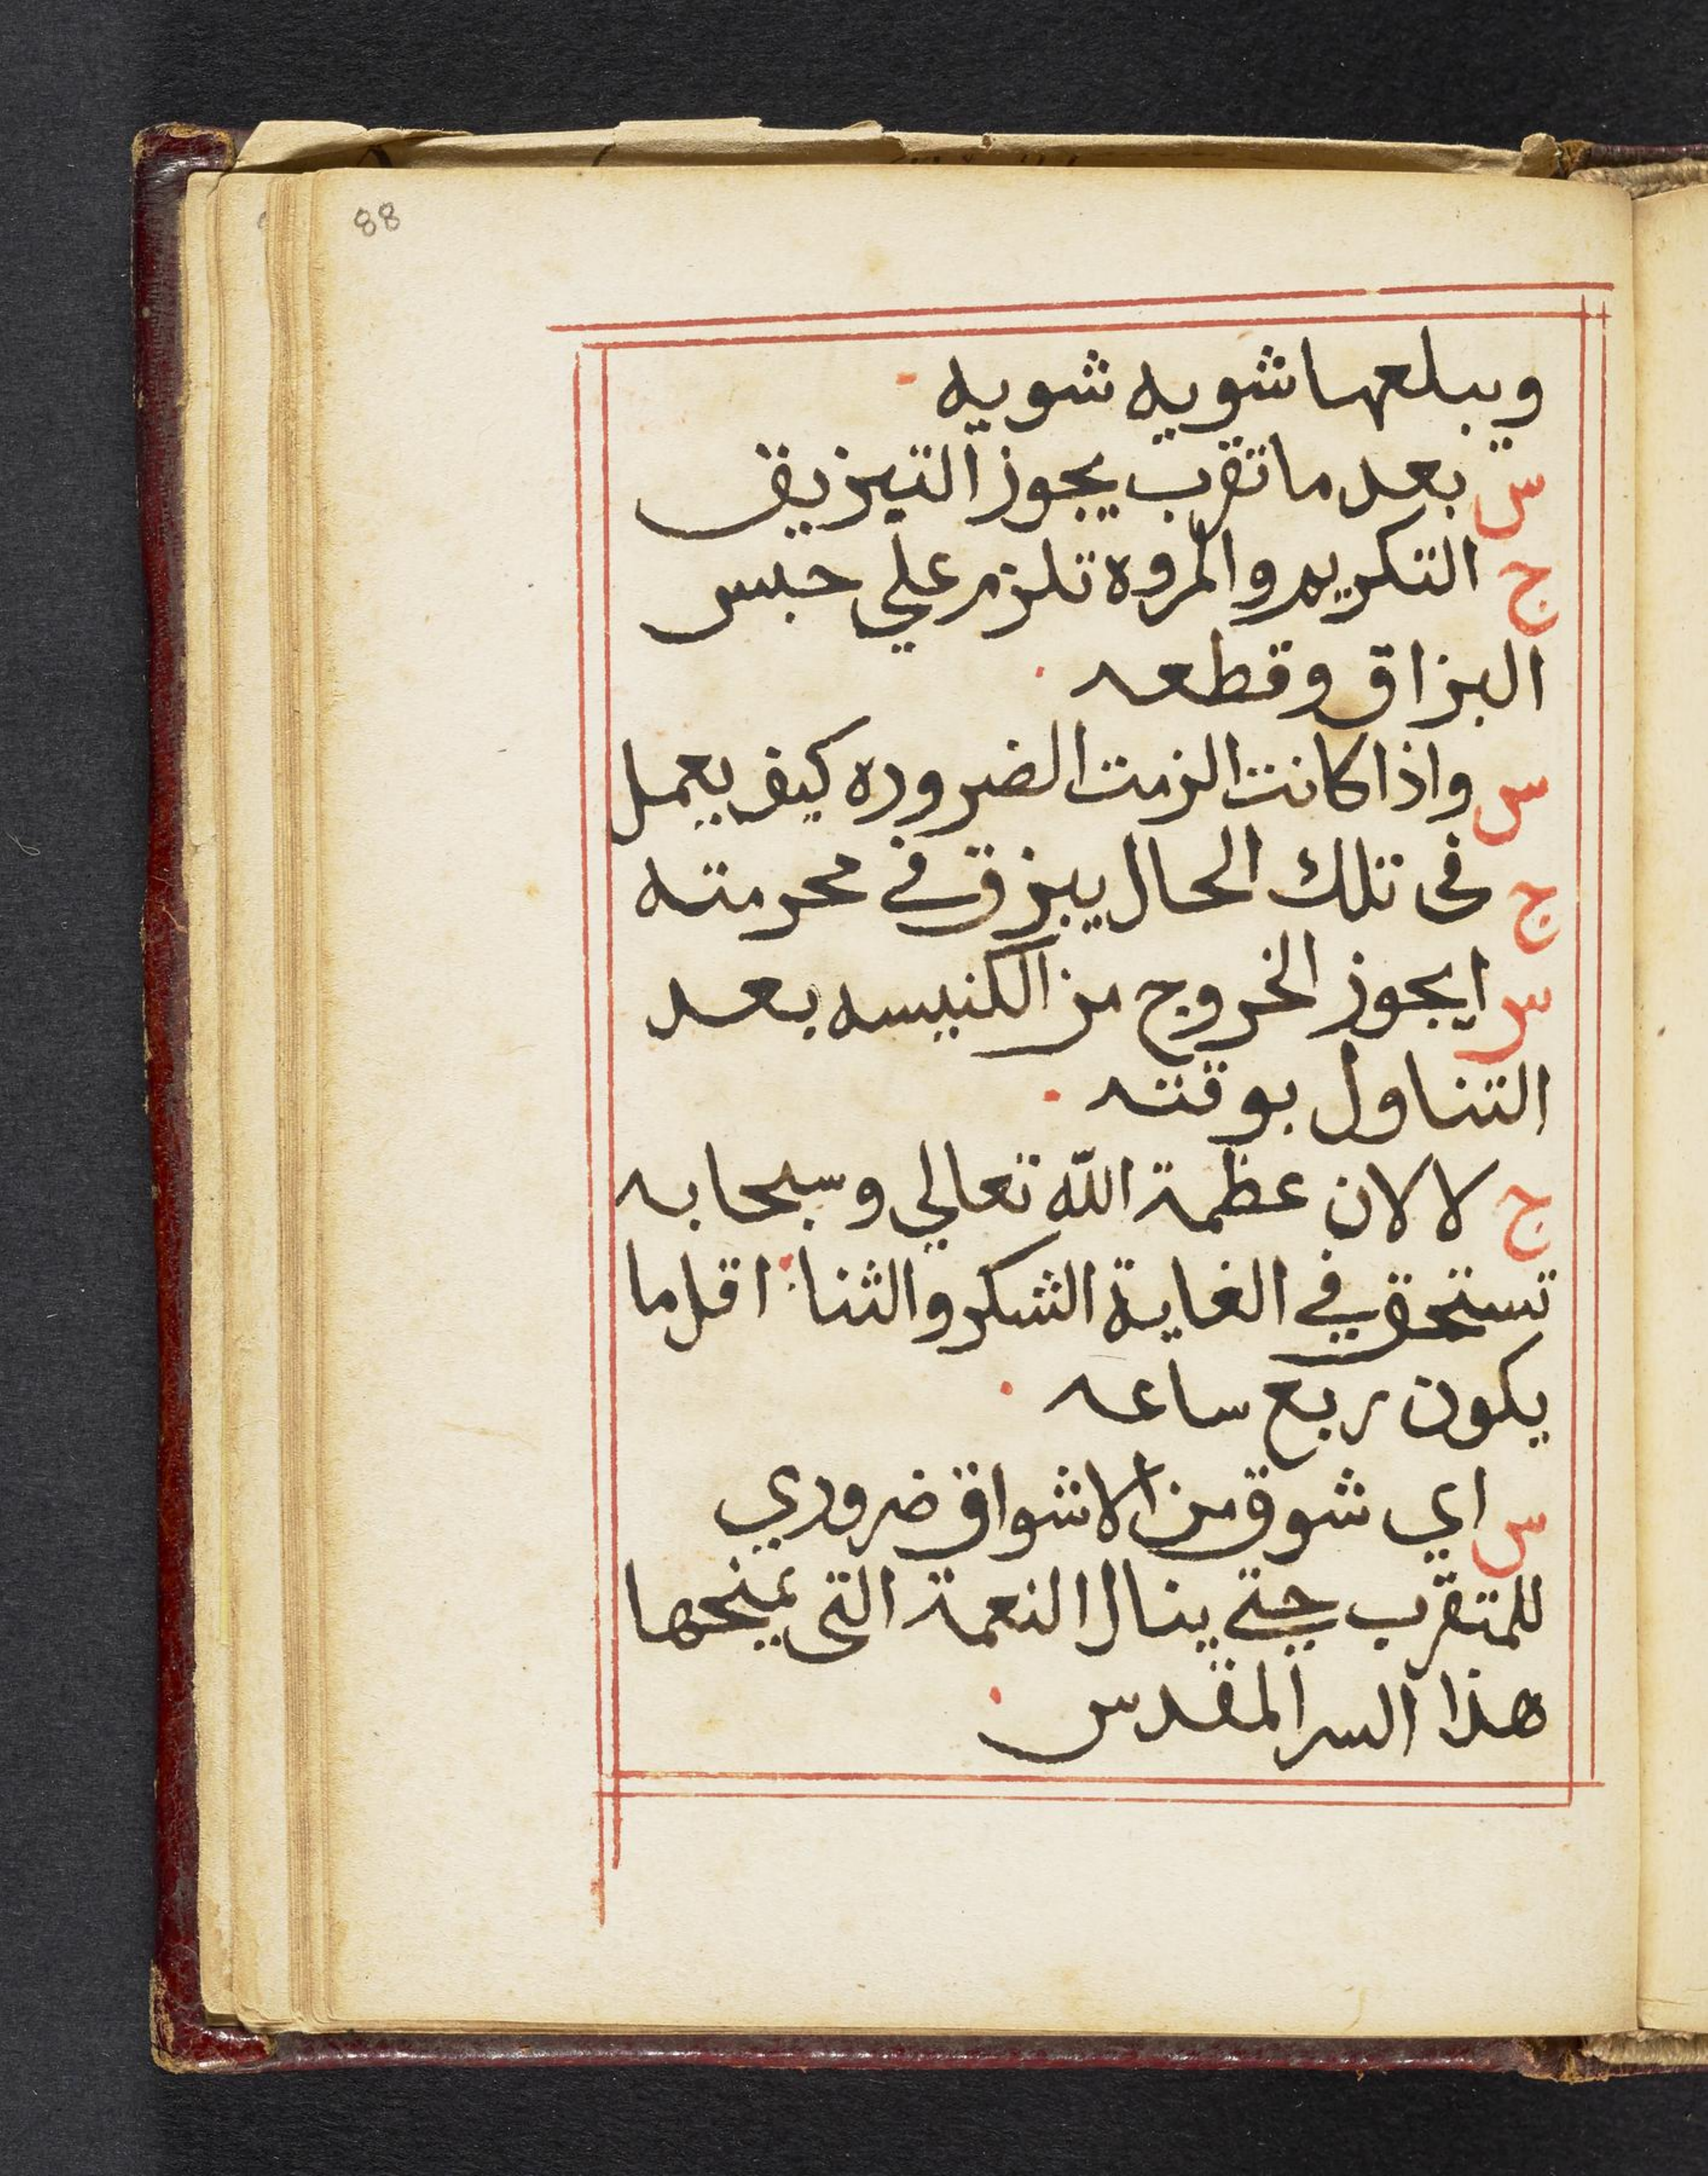 88
ويبلعها شويه شويه
س بعد ما تقرب يجوز التبزيق
ج التكريم والمروه تلزم علي حبس
البزاق وقطعه
س واذا كانت الزمت الضروره كيف يعمل
ج فى تلك الحال يبزق في محرمته
س ايجوز الخروج من الكنيسه بعد
التناول بوقته
ج لا لان عظمة الله تعالي وسبحابه
تستحق في الغاية الشكر والثنا اقل ما
يكون ربع ساعه
س اي شوق من الاشواق ضروري
للمتقرب حتي ينال النعمة التى يمنحها
هذا السر المقدس